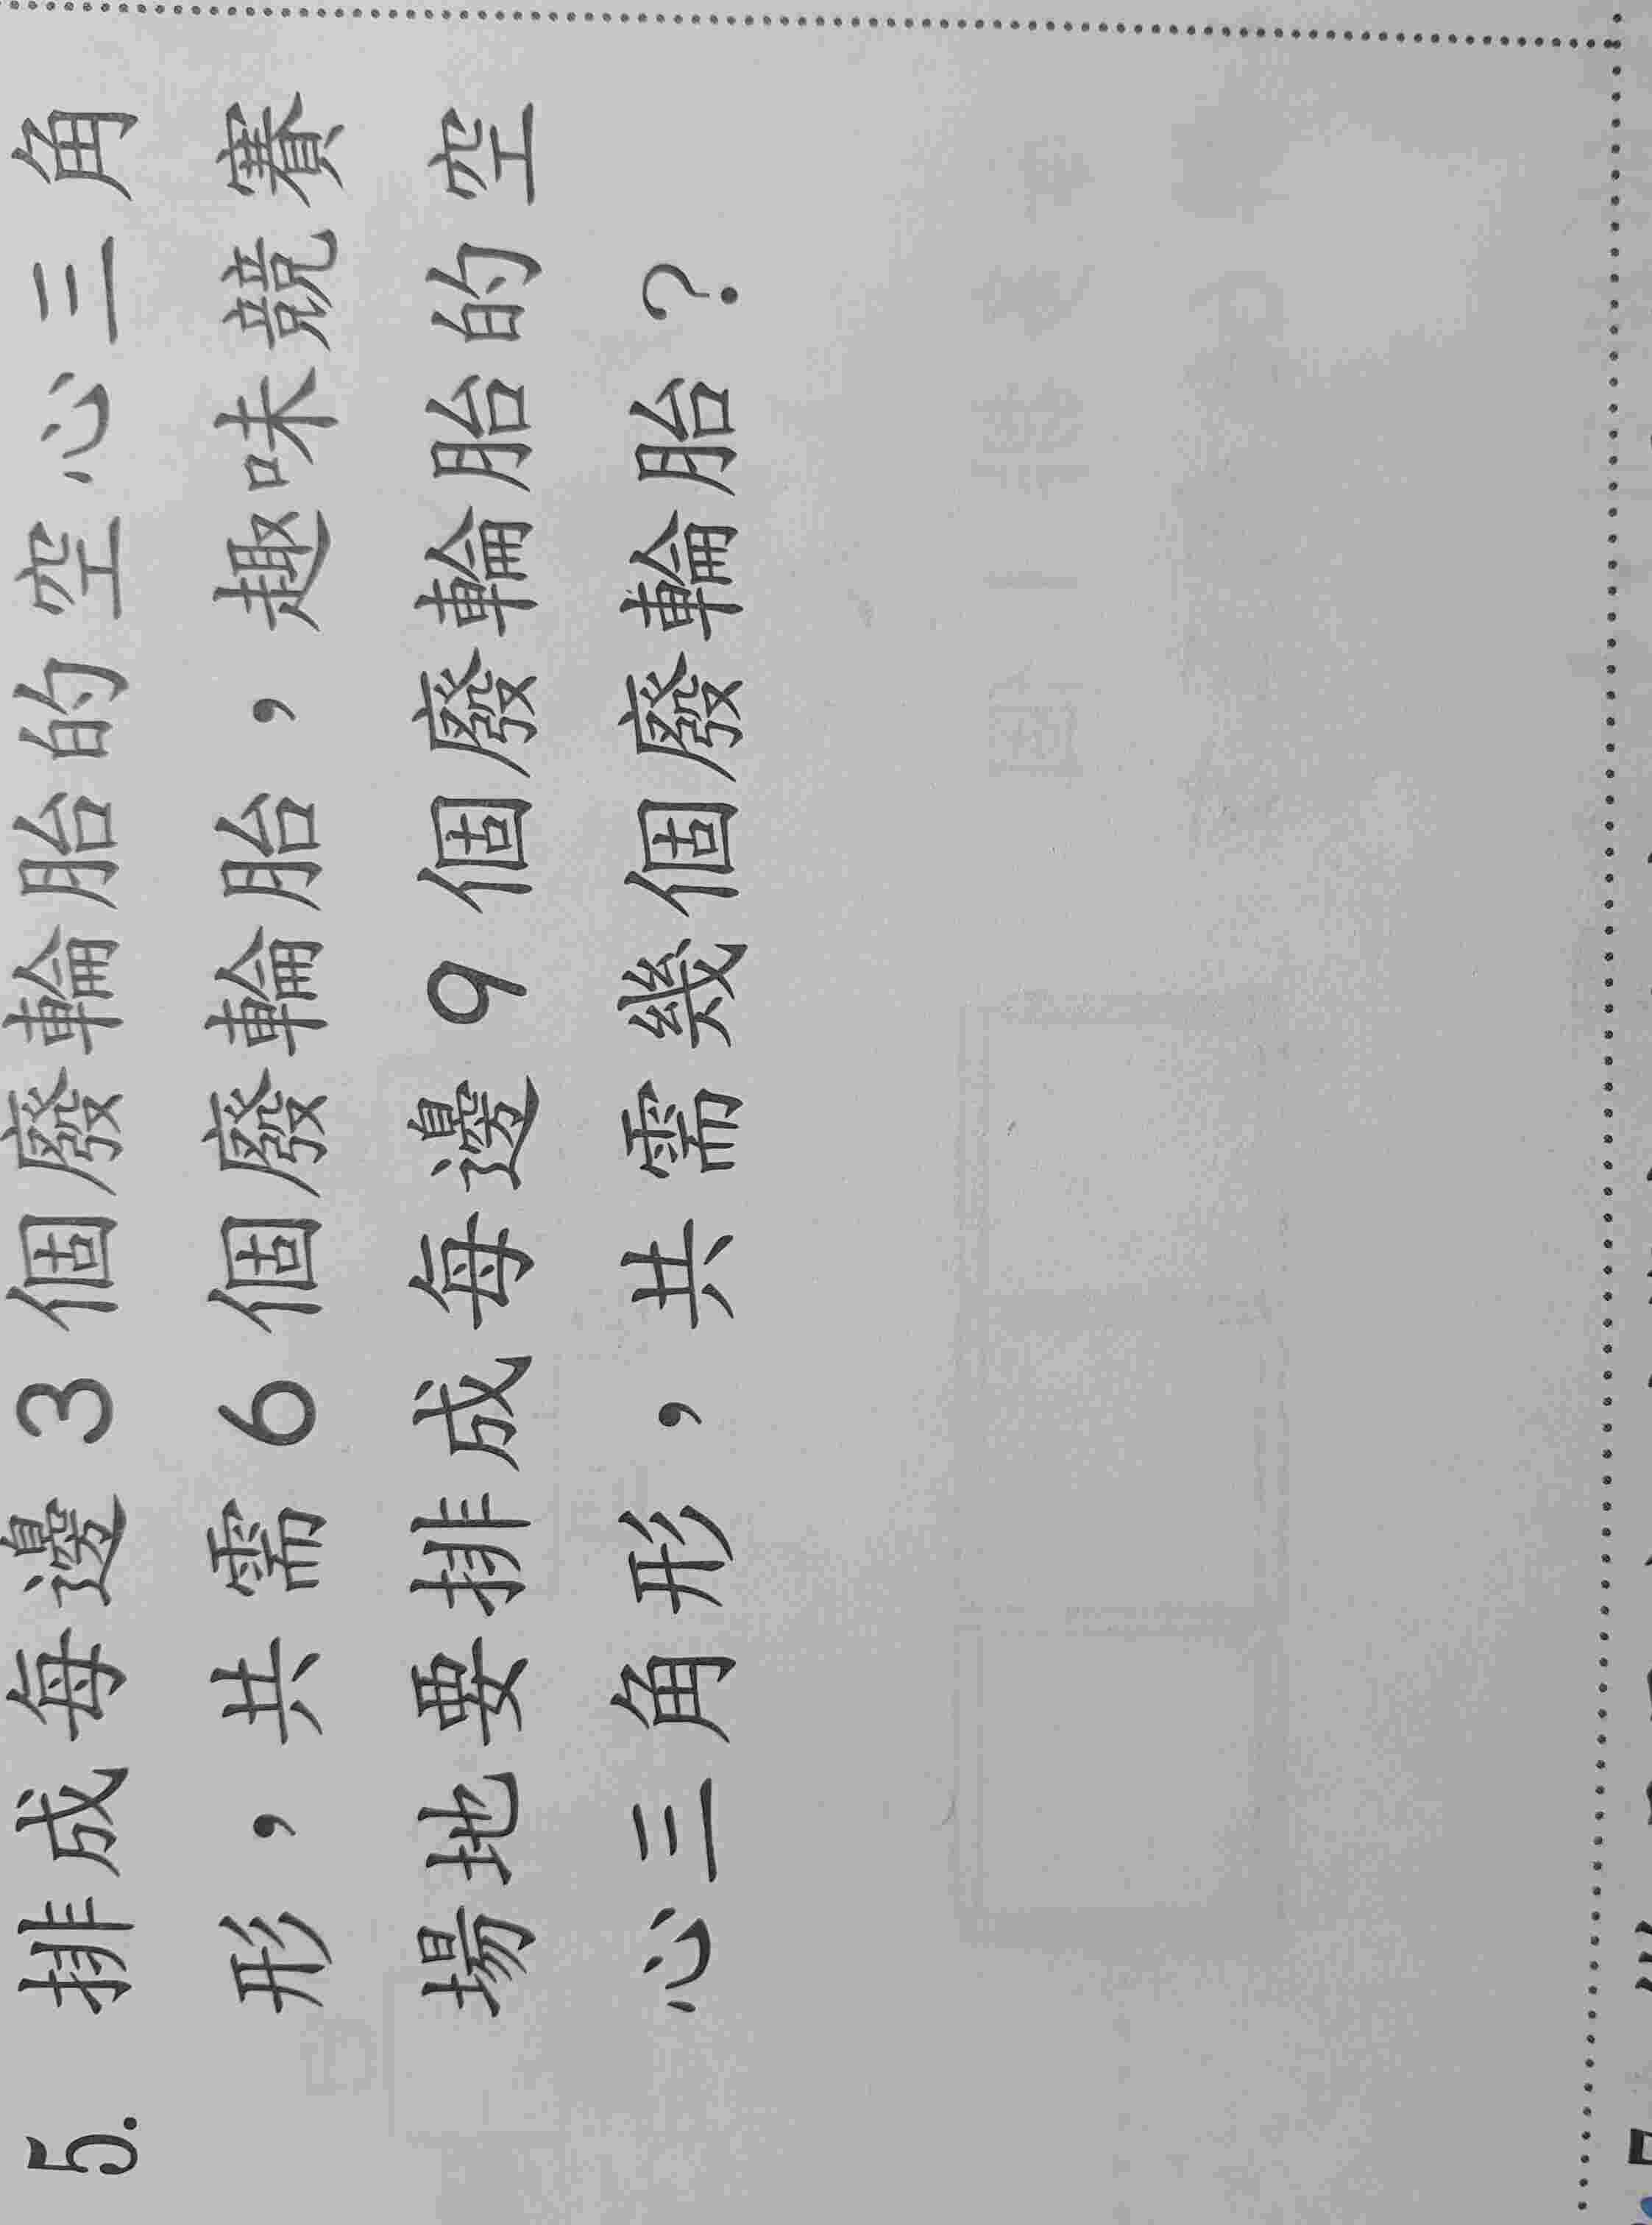 5. 排成每邊 3 個廢輪胎的空心三角
形，共需 6 個廢輪胎，趣味競賽
場地要排成每邊 9 個廢輪胎的空
心三角形，共需幾個廢輪胎？